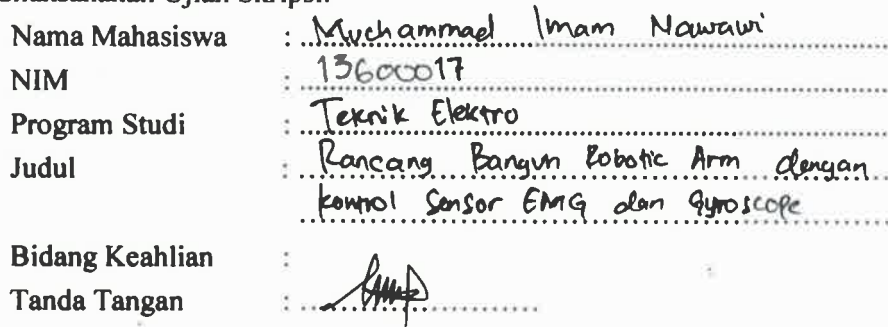 Nama Mahasiswa : Muchammad Imam Nawawi
NIM : 13600017
Program Studi : Teknik Elektro
Judul : Rancang Bangun Robotic Arm dengan
kontrol Sensor EMG dan Gyroscope
Bidang Keahlian :
Tanda Tangan :